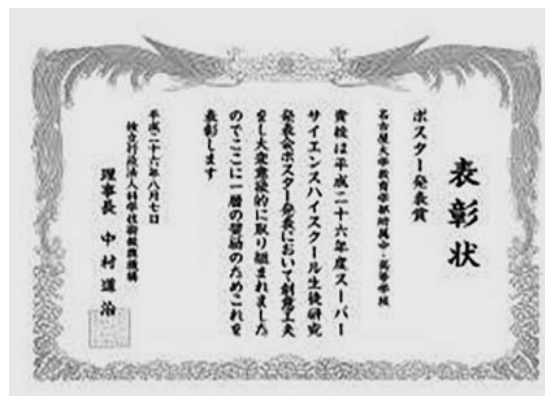 表彰状
ポスター発表賞
名古屋大学教育学部附属中・高等学校
貴校は平成二十六年度スーパー
サイエンスハイスクール生徒研究
発表会ポスター発表において創意工夫
をし大変意欲的に取り組まれました
のでここに一層の奨励のためこれを
表彰します
平成二十六年八月七日
独立行政法人科学技術振興機構
理事長 中村道治